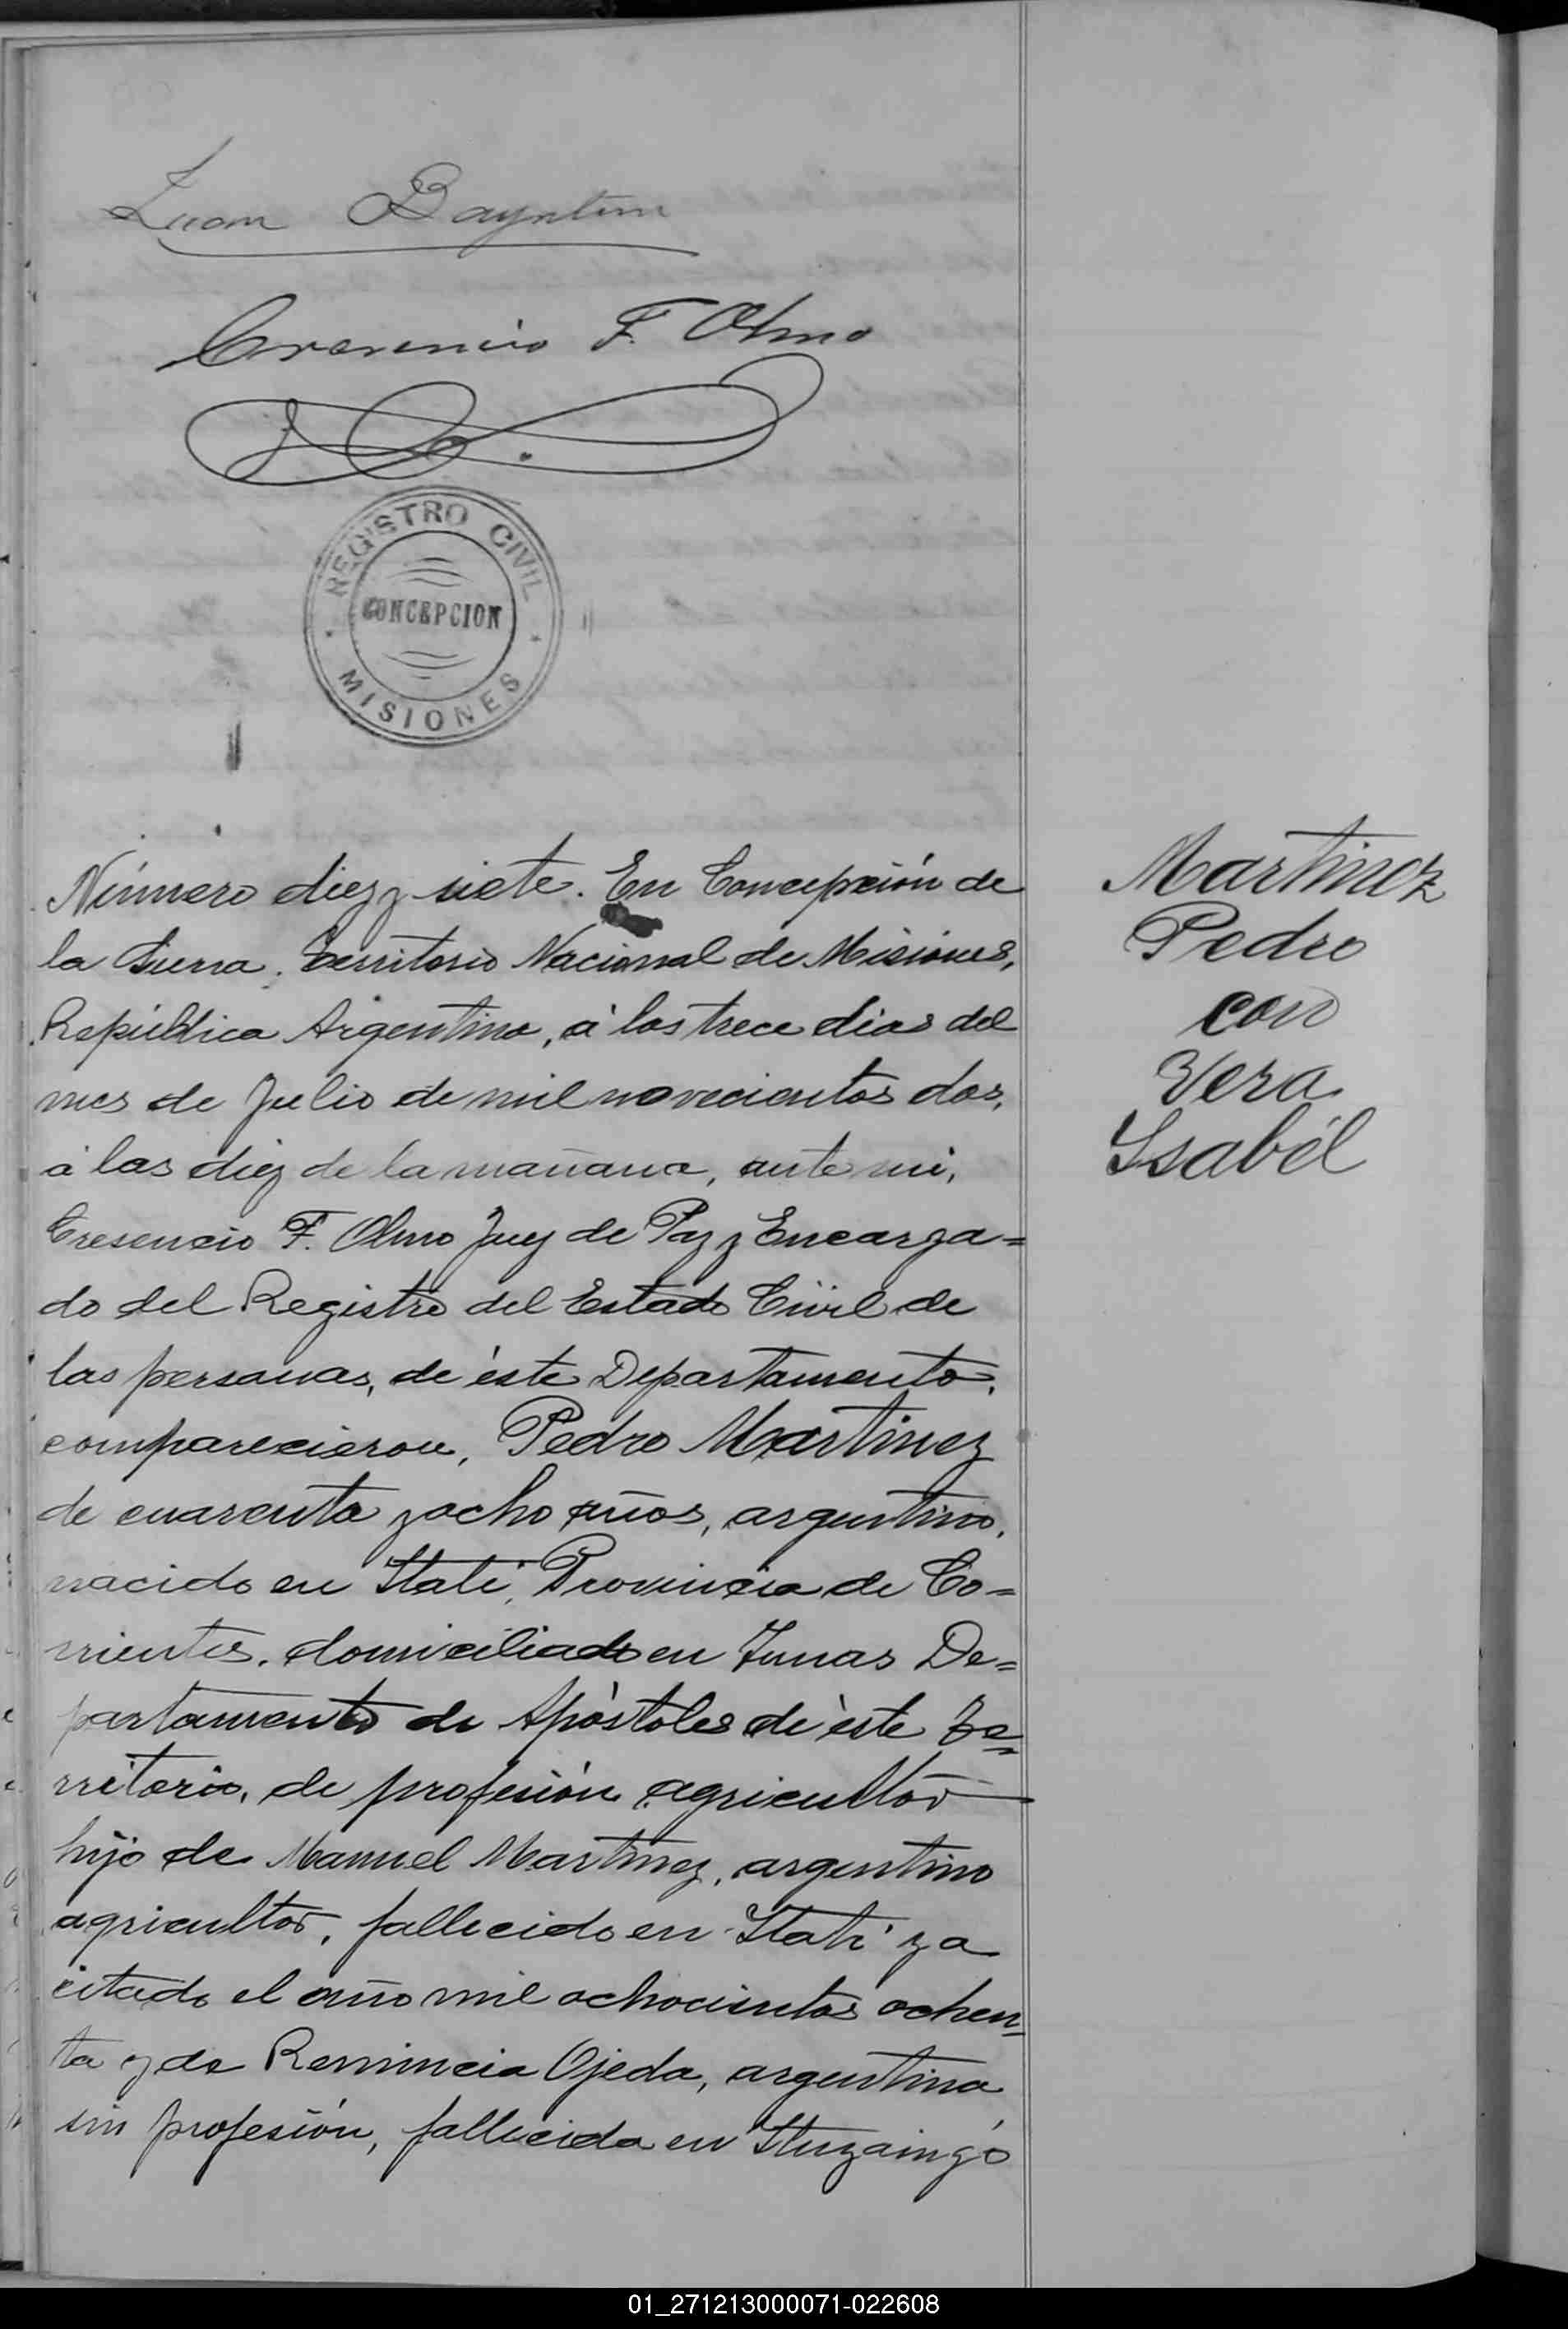 Juan Bayntun
Cresencio F. Olmo
REGISTRO CIVIL
CONCEPCION
MISIONES
Número diez y siete. En Concepción de
la Sierra, Territorio Nacional de Misiones,
República Argentina, á los trece dias del
mes de Julio de mil novecientos dos,
á las diez de la mañana, ante mi,
Cresencio F. Olmo Juez de Paz y Encarga=
do del Registro del Estado Civil de
las personas, de éste Departamento,
comparecieron, Pedro Martinez
de cuarenta y ocho años, argentino,
nacido en Itatí, Provincia de Co=
rrientes, domiciliado en Tunas De=
partamento de Apóstoles de éste Te=
rritorio, de profesión agricultor
hijo de Manuel Martinez, argentino
agricultor, fallecido en Itatí ya
citado el año mil ochocientos ochen=
ta y de Remincia Ojeda, argentina
sin profesión, fallecida en Ituzaingó
Martinez
Pedro
con
Vera
Isabél
01_271213000071-022608